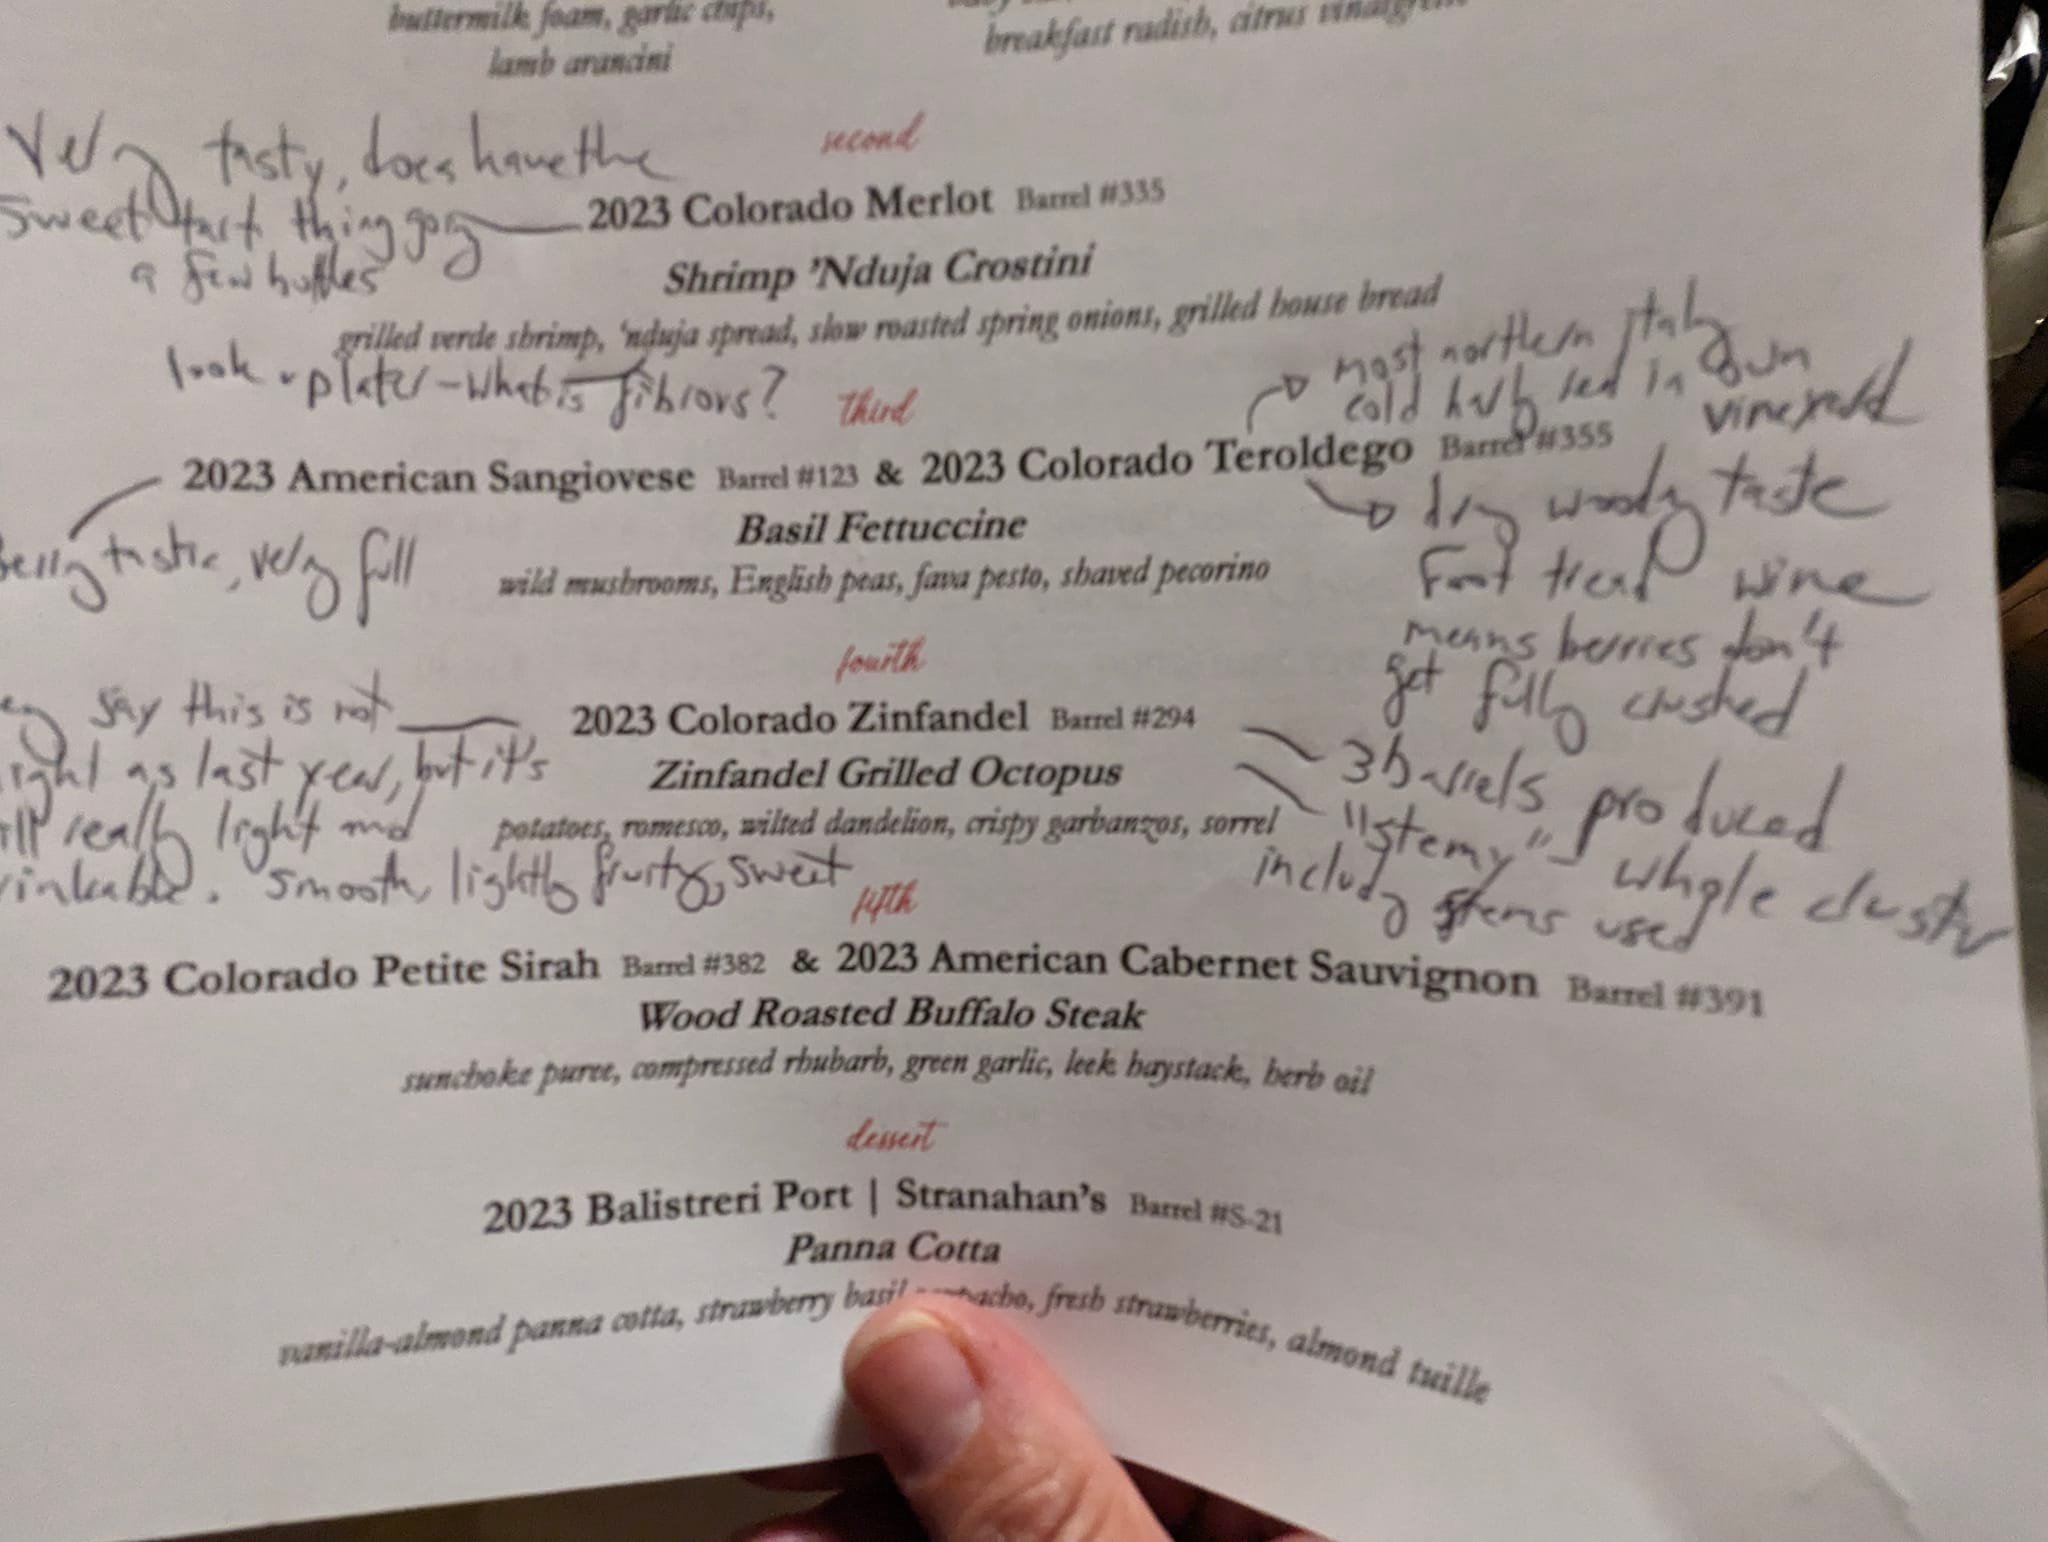 buttermilk foam, garlic chips,
lamb arancini
breakfast radish, citrus vinaigrette
second
Very tasty, does have the
sweet tart thing going
a few bottles
2023 Colorado Merlot Barrel #335
Shrimp 'Nduja Crostini
grilled verde shrimp, 'nduja spread, slow roasted spring onions, grilled house bread
look up later - what is
third
most northern Italy
cold in own
vineyard
2023 American Sangiovese Barrel #123 & 2023 Colorado Teroldego Barrel #355
Basil Fettuccine
wild mushrooms, English peas, fava pesto, shaved pecorino
tastic, very full
dry woody taste
Foot tread wine
means berries don't
get fully crushed
fourth
say this is not
as last year, but it's
really light and
smooth, lightly fruity, sweet
2023 Colorado Zinfandel Barrel #294
Zinfandel Grilled Octopus
potatoes, romesco, wilted dandelion, crispy garbanzos, sorrel
3 barrels produced
"stemy" - whole cluster
includy stems used
fifth
2023 Colorado Petite Sirah Barrel #382 & 2023 American Cabernet Sauvignon Barrel #391
Wood Roasted Buffalo Steak
sunchoke puree, compressed rhubarb, green garlic, leek haystack, herb oil
dessert
2023 Balistreri Port | Stranahan's Barrel #S-21
Panna Cotta
vanilla-almond panna cotta, strawberry basil fresh strawberries, almond tuille